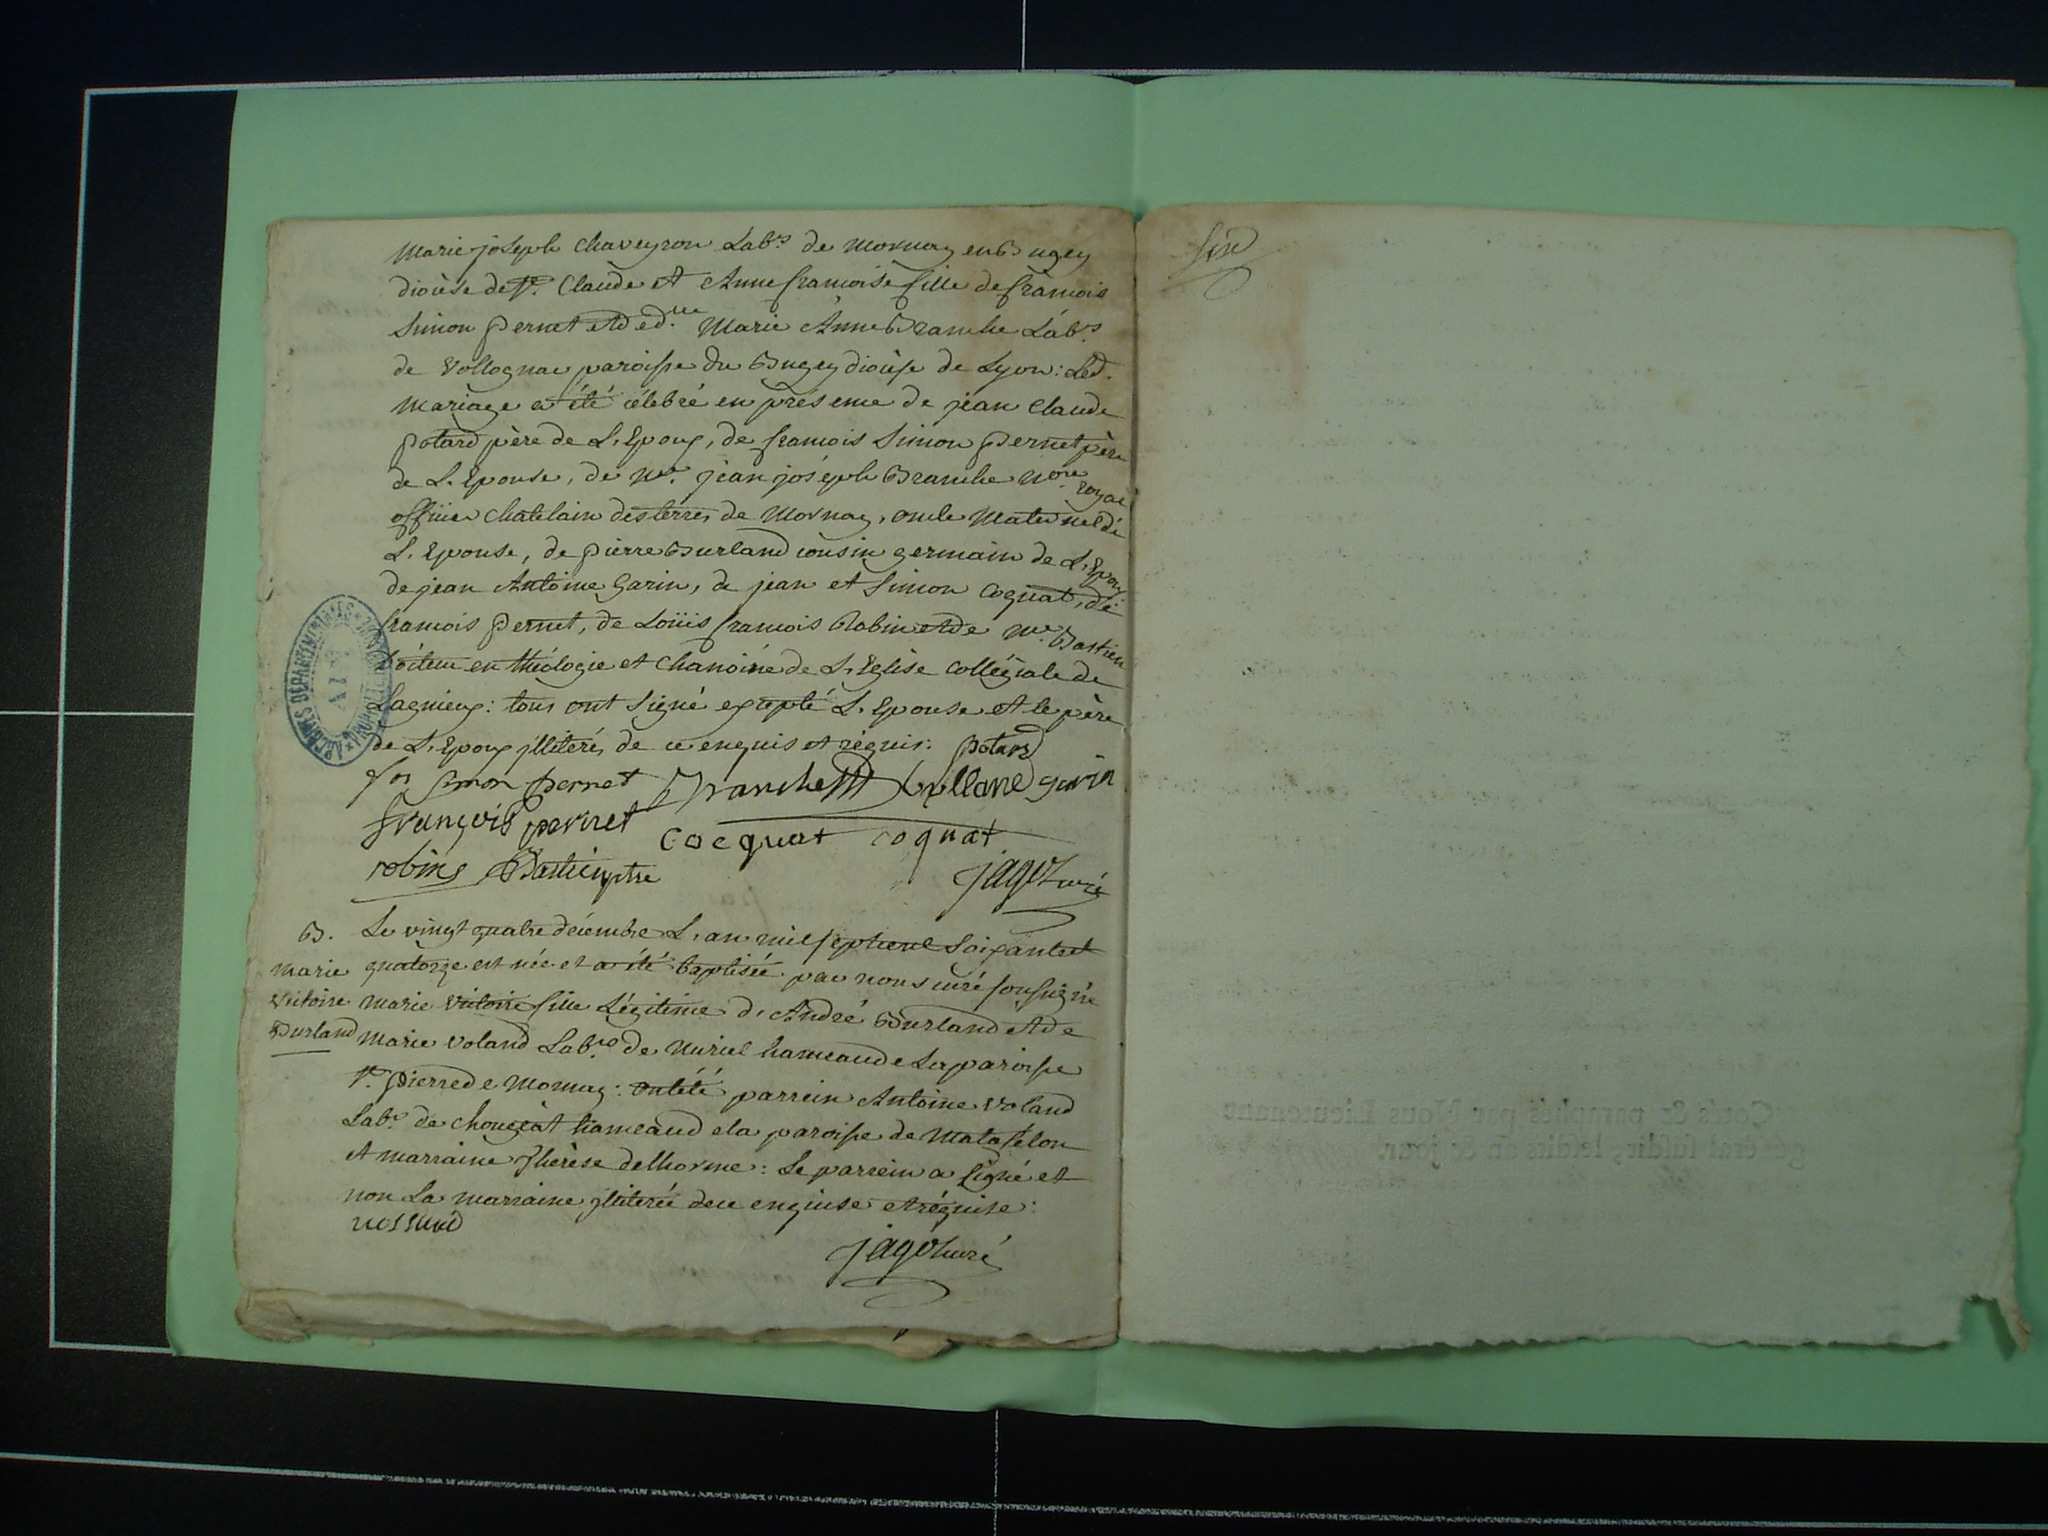 Marie joseph chaveyron Lab.rs de Mornay en Bugey
diocèse de St. Claude et Anne francoise fille de francois
Simon Pernet et de d.lle Marie Anne Branche Lab.rs
de Vollognac paroisse du Bugey diocèse de Lyon: Led.
Mariage a été célebré en présence de jean Claude
potard père de L'Epoux, de francois Simon Pernet père
de L'Epouse, de Me. jean joséph Branche N.ore royal
officier chatelain des terres de Mornay, oncle Maternel dé
L'Epouse, de pierre Burland cousin germain de L'Epoux
de jean Antoine Garin, de jean et Simon Coquat, dé
francois Pernet, de Loüis francois Robin et de Me. Bastien
docteur en théologie et chanoine de L'Eglise collégiale de
Lagnieux: tous ont signé excepté L'Epouse et le père
de L'Epoux jlliterés de ce enquis et réquis: potard
f.ois Simon pernet Branche Burlland garin
françois pernet cocquat coquat
robin Bastien ptre jagot curé
B. Le vingt quatre décembre L'an mil sept cent soixante et
marie quatorze est née et a été baptisée par nous curé soussigné
victoire marie victoire fille Légitime d'André Burland et de
Burland Marie Voland Lab.rs de Muriel hameau de La paroisse
St. Pierre de Mornay: ont été parrein Antoine Voland
Lab.r de chougeat hameau de la paroisse de Matafelon
et marraine Thérèse delhorme: Le parrein a signé et
non La marraine jlliterée de ce enquise et réquise:
jagot curé
fin
Cotés & paraphés par Nous Lieutenant
général susdit, lesdits an & jour.
ARCHIVES DEPARTEMENTALES
AIN